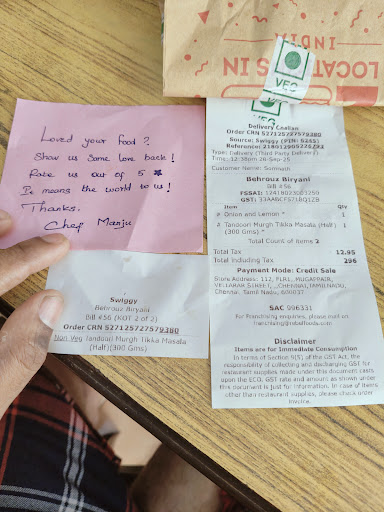 LOCATIONS IN
INDIA
VEG
VEG
Loved your food ?
Show us some love back !
Rate us out of 5 *
It means the world to us !
Thanks.
Chef Manju
Swiggy
Behrouz Biryani
Bill #56 (KOT 2 of 2)
Order CRN 527125727579380
Non Veg Tandoori Murgh Tikka Masala
(Half)(300 Gms)
Delivery Challan
Order CRN 527125727579380
Source: Swiggy (PIN: 5255)
Type: Delivery (Third Party Delivery)
Time: 12:38pm 26-Sep-25
Customer Name: Somnath
Behrouz Biryani
Bill #56
FSSAI: 12418023001250
GST: 33AABCF5718Q1ZB
Item Qty
# Onion and Lemon * 1
# Tandoori Murgh Tikka Masala (Half) 1
(300 Gms) *
Total Count of Items 2
Total Tax 12.95
Total Including Tax 296
Payment Mode: Credit Sale
Store Address: 112, FLR1, MUGAPPAIR,
Chennai, Tamil Nadu, 600037
SAC 996331
For Franchising enquiries, please mail on
franchising@rebelfoods.com
Disclaimer
Items are for Immediate Consumption
In terms of Section 9(5) of the GST Act, the
responsibility of collecting and discharging GST for
restaurant supplies made under this document cases
upon the ECO. GST rate and amount as shown under
this document is just for information. In case of items
other than restaurant supplies, please check order
invoice.